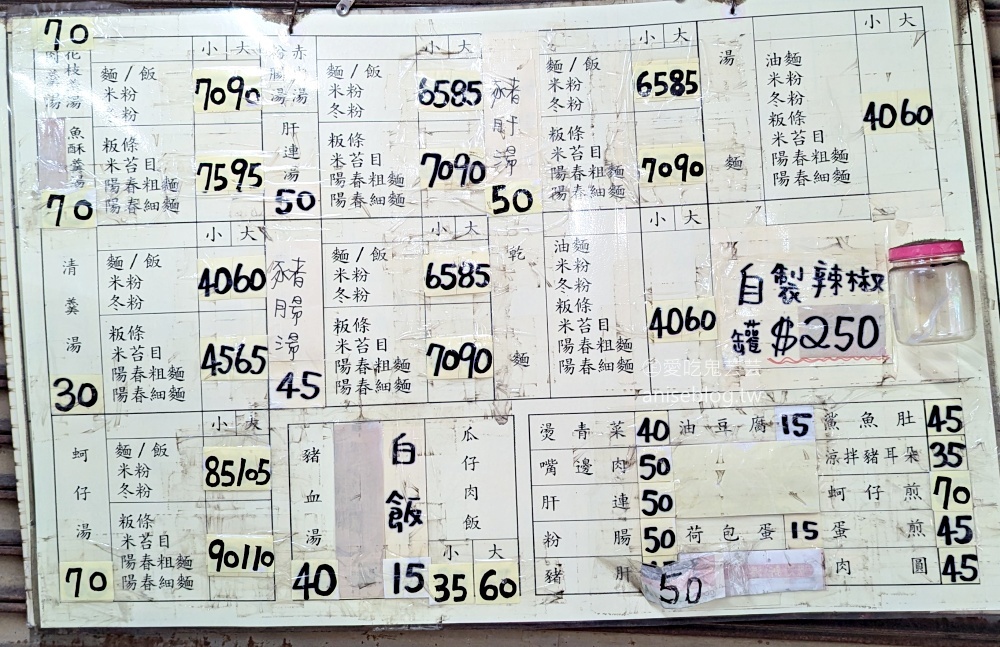 70
小 大
花枝羹湯
肉羹湯
麵/飯
米粉
冬粉
7090
魚酥羹湯
粄條
米苔目
陽春粗麵
陽春細麵
7595
70
小 大
麵/飯
米粉
冬粉
6585
肝連湯
粄條
米苔目
陽春粗麵
陽春細麵
7090
50
小 大
豬肝湯
麵/飯
米粉
冬粉
6585
粄條
米苔目
陽春粗麵
陽春細麵
7090
50
小 大
湯麵
油麵
米粉
冬粉
粄條
米苔目
陽春粗麵
陽春細麵
4060
小 大
清羹湯
麵/飯
米粉
冬粉
4060
粄條
米苔目
陽春粗麵
陽春細麵
4565
30
小 大
豬腸湯
麵/飯
米粉
冬粉
6585
粄條
米苔目
陽春粗麵
陽春細麵
7090
45
小 大
乾麵
油麵
米粉
冬粉
粄條
米苔目
陽春粗麵
陽春細麵
4060
自製辣椒
罐$250
@愛吃鬼芸芸
aniseblog.tw
小 大
蚵仔湯
麵/飯
米粉
冬粉
85105
粄條
米苔目
陽春粗麵
陽春細麵
90110
70
豬血湯
40
白飯
15
瓜仔肉飯
小 大
35 60
燙青菜 40 油豆腐 15 鯊魚肚 45
嘴邊肉 50 涼拌豬耳朵 35
肝連 50 蚵仔煎 70
粉腸 50 荷包蛋 15 蛋煎 45
豬肝 50 肉圓 45